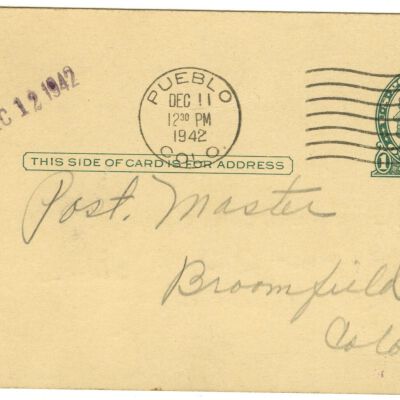 C 12 1942
PUEBLO
DEC 11
12 30 PM
1942
COLO.
THIS SIDE OF CARD IS FOR ADDRESS
1
Post. Master
Broomfield
Colo